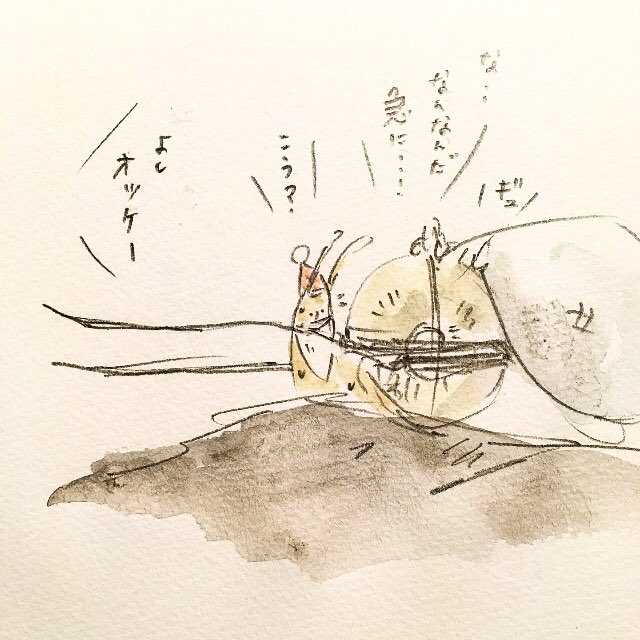 な…
なんなんだ
急に…
ギュ
こう?
よし
オッケー